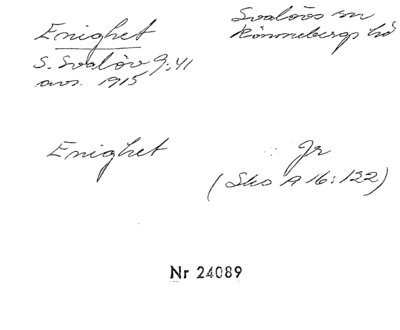 Enighet
S. Svalöv 9:41
avs. 1915
Svalövs sn
Rönnebergs hd
Enighet
Jr
(Sko A 16:122)
Nr 24089